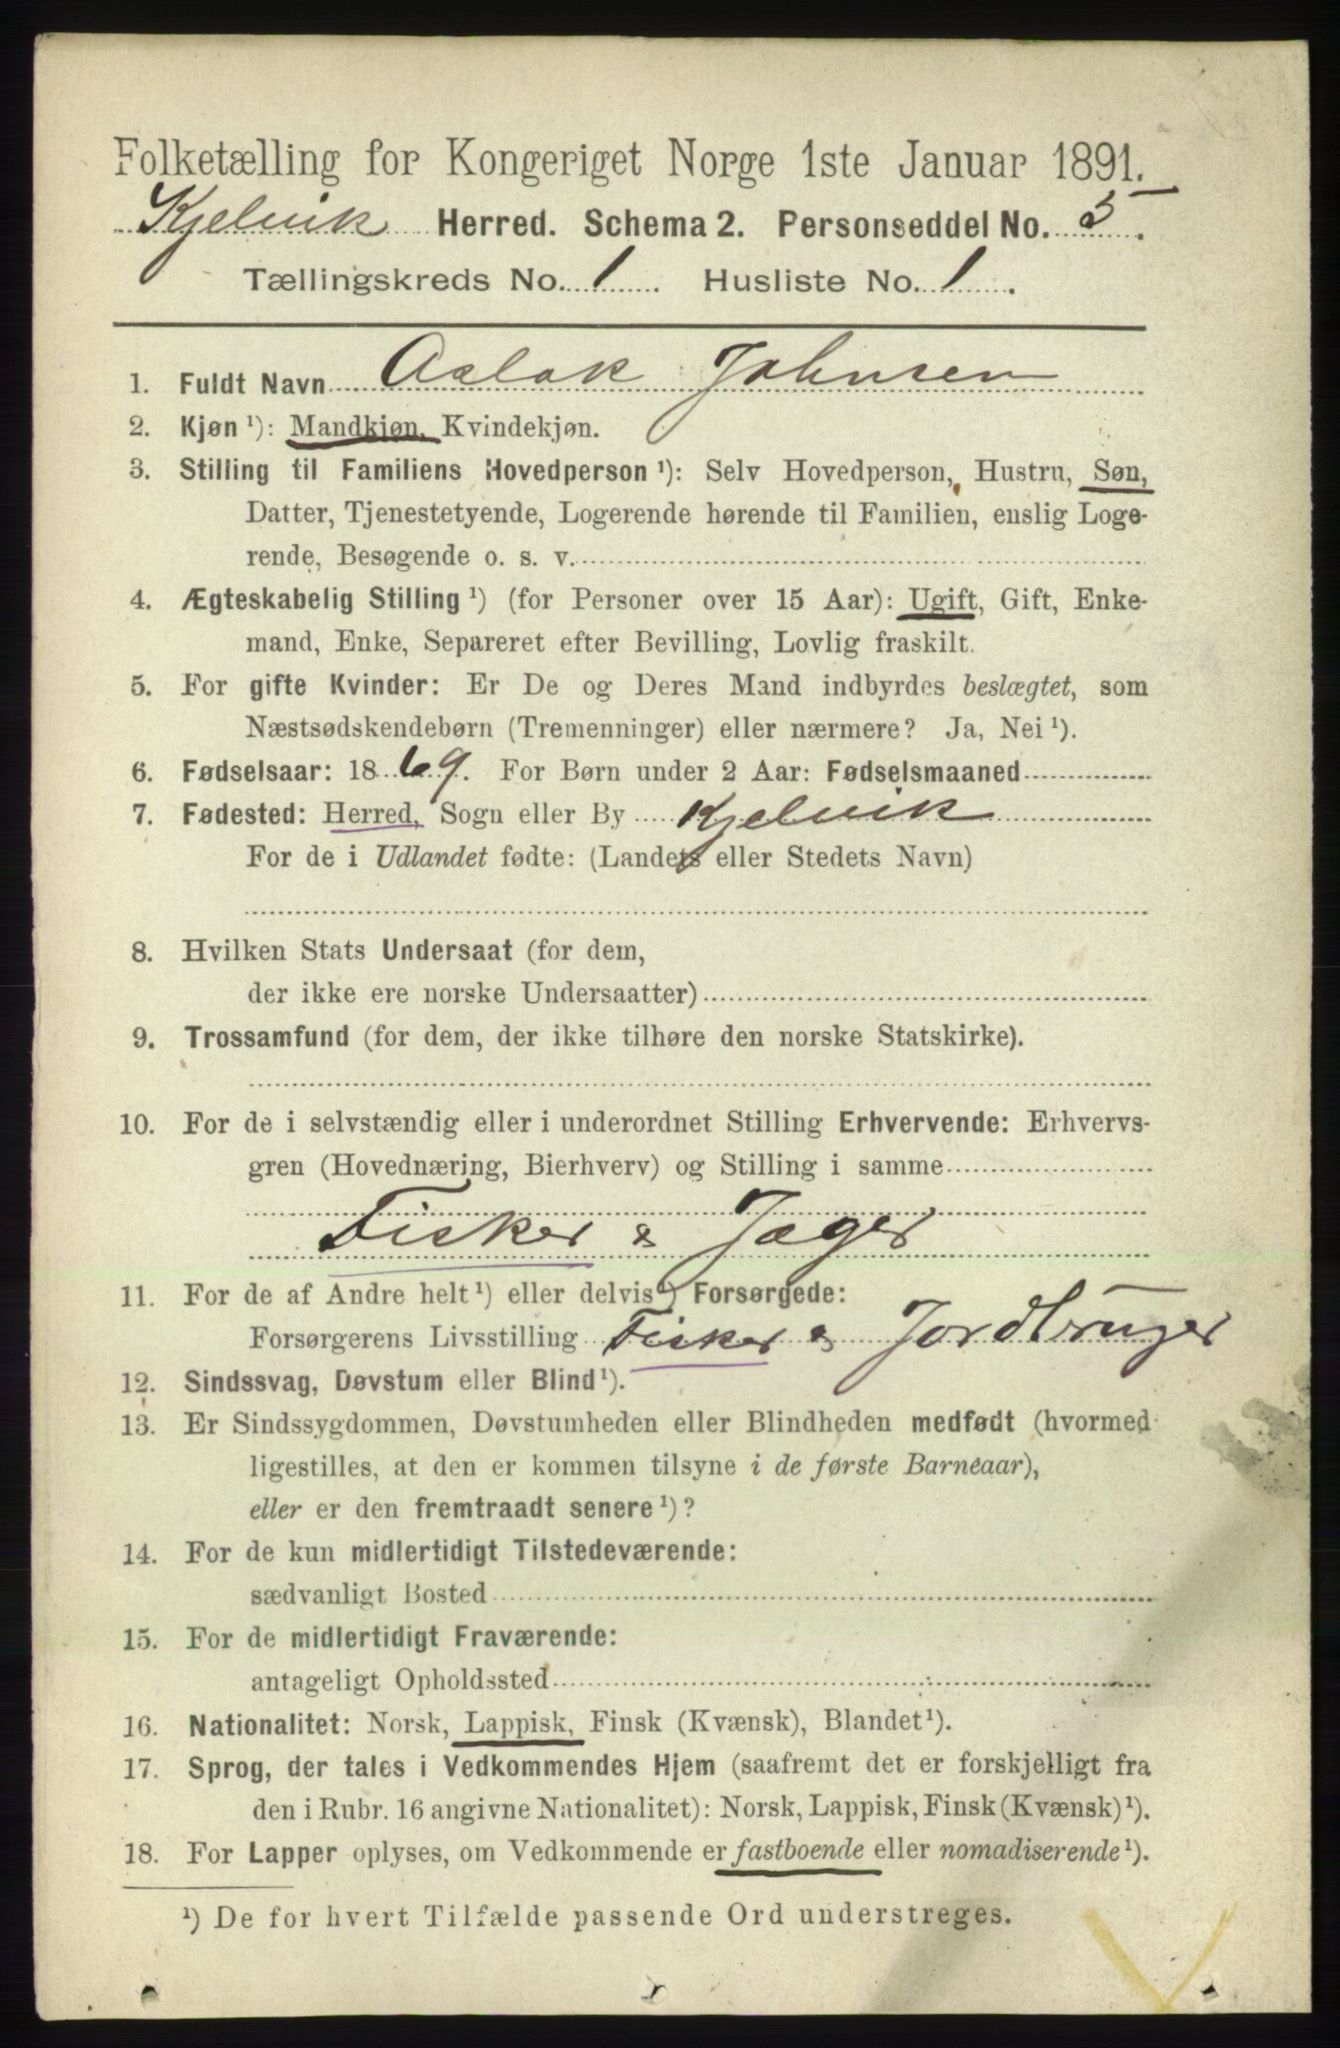 Folketælling for Kongeriget Norge 1ste Januar 1891.
Kjelvik Herred. Schema 2. Personseddel No. 5.
Tællingskreds No. 1. Husliste No. 1.
1. Fuldt Navn Aslak Johnsen
2. Kjøn ¹): Mandkjøn, Kvindekjøn.
3. Stilling til Familiens Hovedperson ¹): Selv Hovedperson, Hustru, Søn,
Datter, Tjenestetyende, Logerende hørende til Familien, enslig Loge-
rende, Besøgende o. s. v.
4. Ægteskabelig Stilling ¹) (for Personer over 15 Aar): Ugift, Gift, Enke-
mand, Enke, Separeret efter Bevilling, Lovlig fraskilt.
5. For gifte Kvinder: Er De og Deres Mand indbyrdes beslægtet, som
Næstsødskendebørn (Tremenninger) eller nærmere? Ja, Nei ¹).
6. Fødselsaar: 1869. For Børn under 2 Aar: Fødselsmaaned
7. Fødested: Herred, Sogn eller By Kjelvik
For de i Udlandet fødte: (Landets eller Stedets Navn)
8. Hvilken Stats Undersaat (for dem,
der ikke ere norske Undersaatter)
9. Trossamfund (for dem, der ikke tilhøre den norske Statskirke).
10. For de i selvstændig eller i underordnet Stilling Erhvervende: Erhvervs-
gren (Hovednæring, Bierhverv) og Stilling i samme
Fisker & Jæger
11. For de af Andre helt ¹) eller delvis ¹) Forsørgede:
Forsørgerens Livsstilling Fisker & Jordbruger
12. Sindssvag, Døvstum eller Blind ¹).
13. Er Sindssygdommen, Døvstumheden eller Blindheden medfødt (hvormed
ligestilles, at den er kommen tilsyne i de første Barneaar),
eller er den fremtraadt senere ¹)?
14. For de kun midlertidigt Tilstedeværende:
sædvanligt Bosted
15. For de midlertidigt Fraværende:
antageligt Opholdssted
16. Nationalitet: Norsk, Lappisk, Finsk (Kvænsk), Blandet ¹).
17. Sprog, der tales i Vedkommendes Hjem (saafremt det er forskjelligt fra
den i Rubr. 16 angivne Nationalitet): Norsk, Lappisk, Finsk (Kvænsk) ¹).
18. For Lapper oplyses, om Vedkommende er fastboende eller nomadiserende ¹).
¹) De for hvert Tilfælde passende Ord understreges.